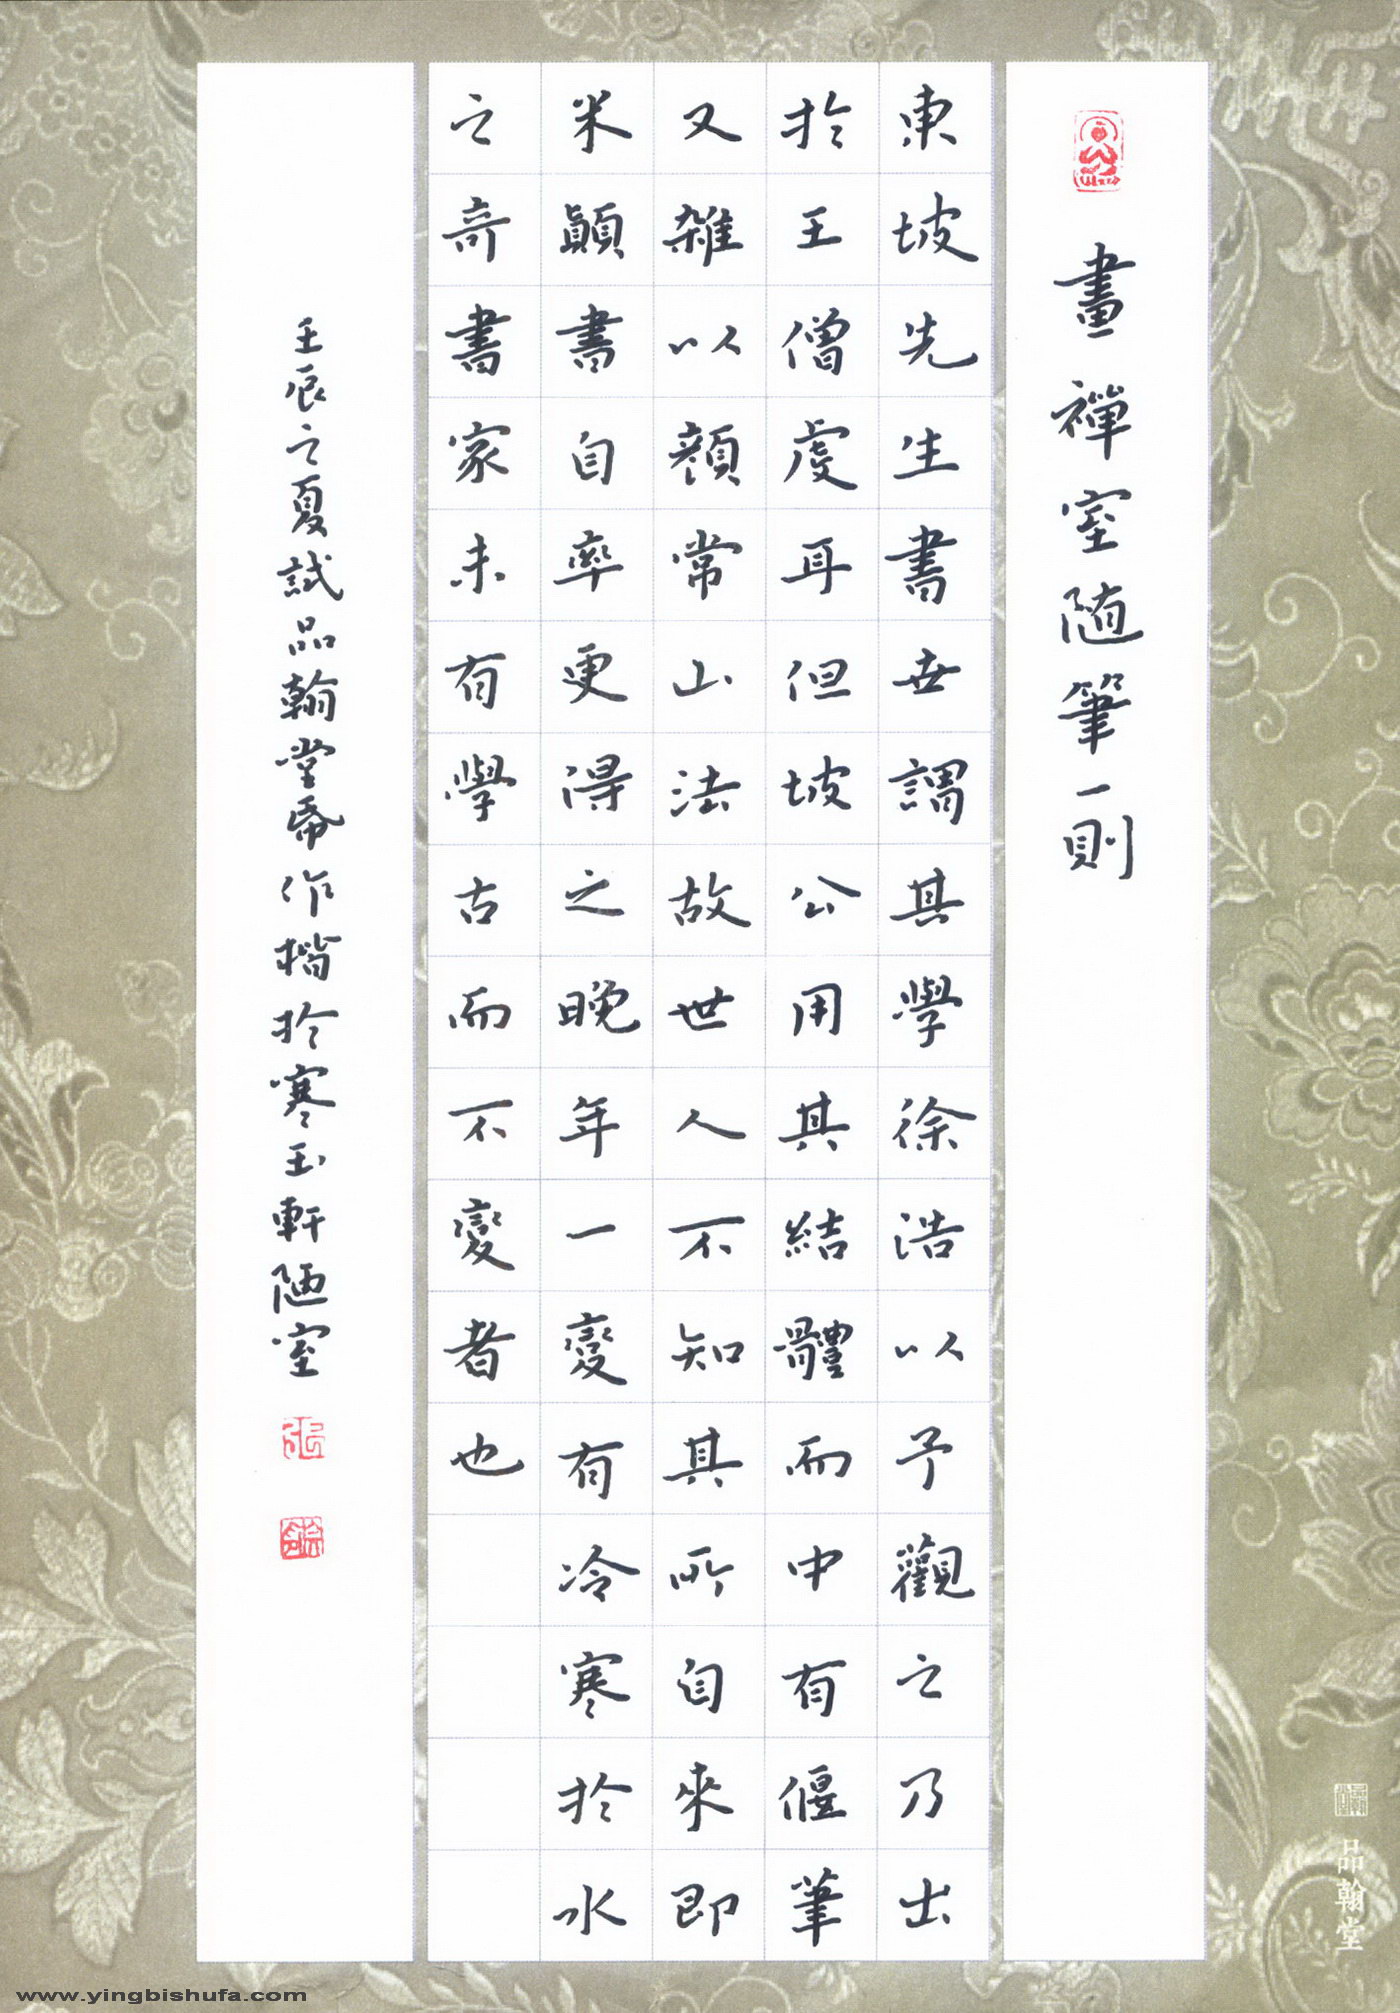 畫禪室随筆一則
東坡先生書世謂其學徐浩以予觀之乃出
於王僧虔耳但坡公用其結體而中有偃筆
又雜以顏常山法故世人不知其所自來即
米顛書自率更得之晚年一變有冷寒於水
之奇書家未有學古而不變者也
壬辰之夏試品翰堂帋作楷於寒玉軒陋室
品翰堂
www.yingbishufa.com